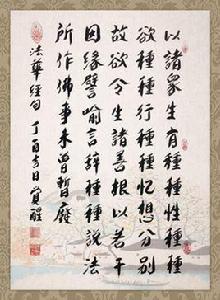 以諸眾生有種種性種種
欲種種行種種憶想分別
故欲令生諸善根以若干
因緣譬喻言辭種種說法
所作佛事未曾暫廢
法華經句 丁酉 日 覺醒